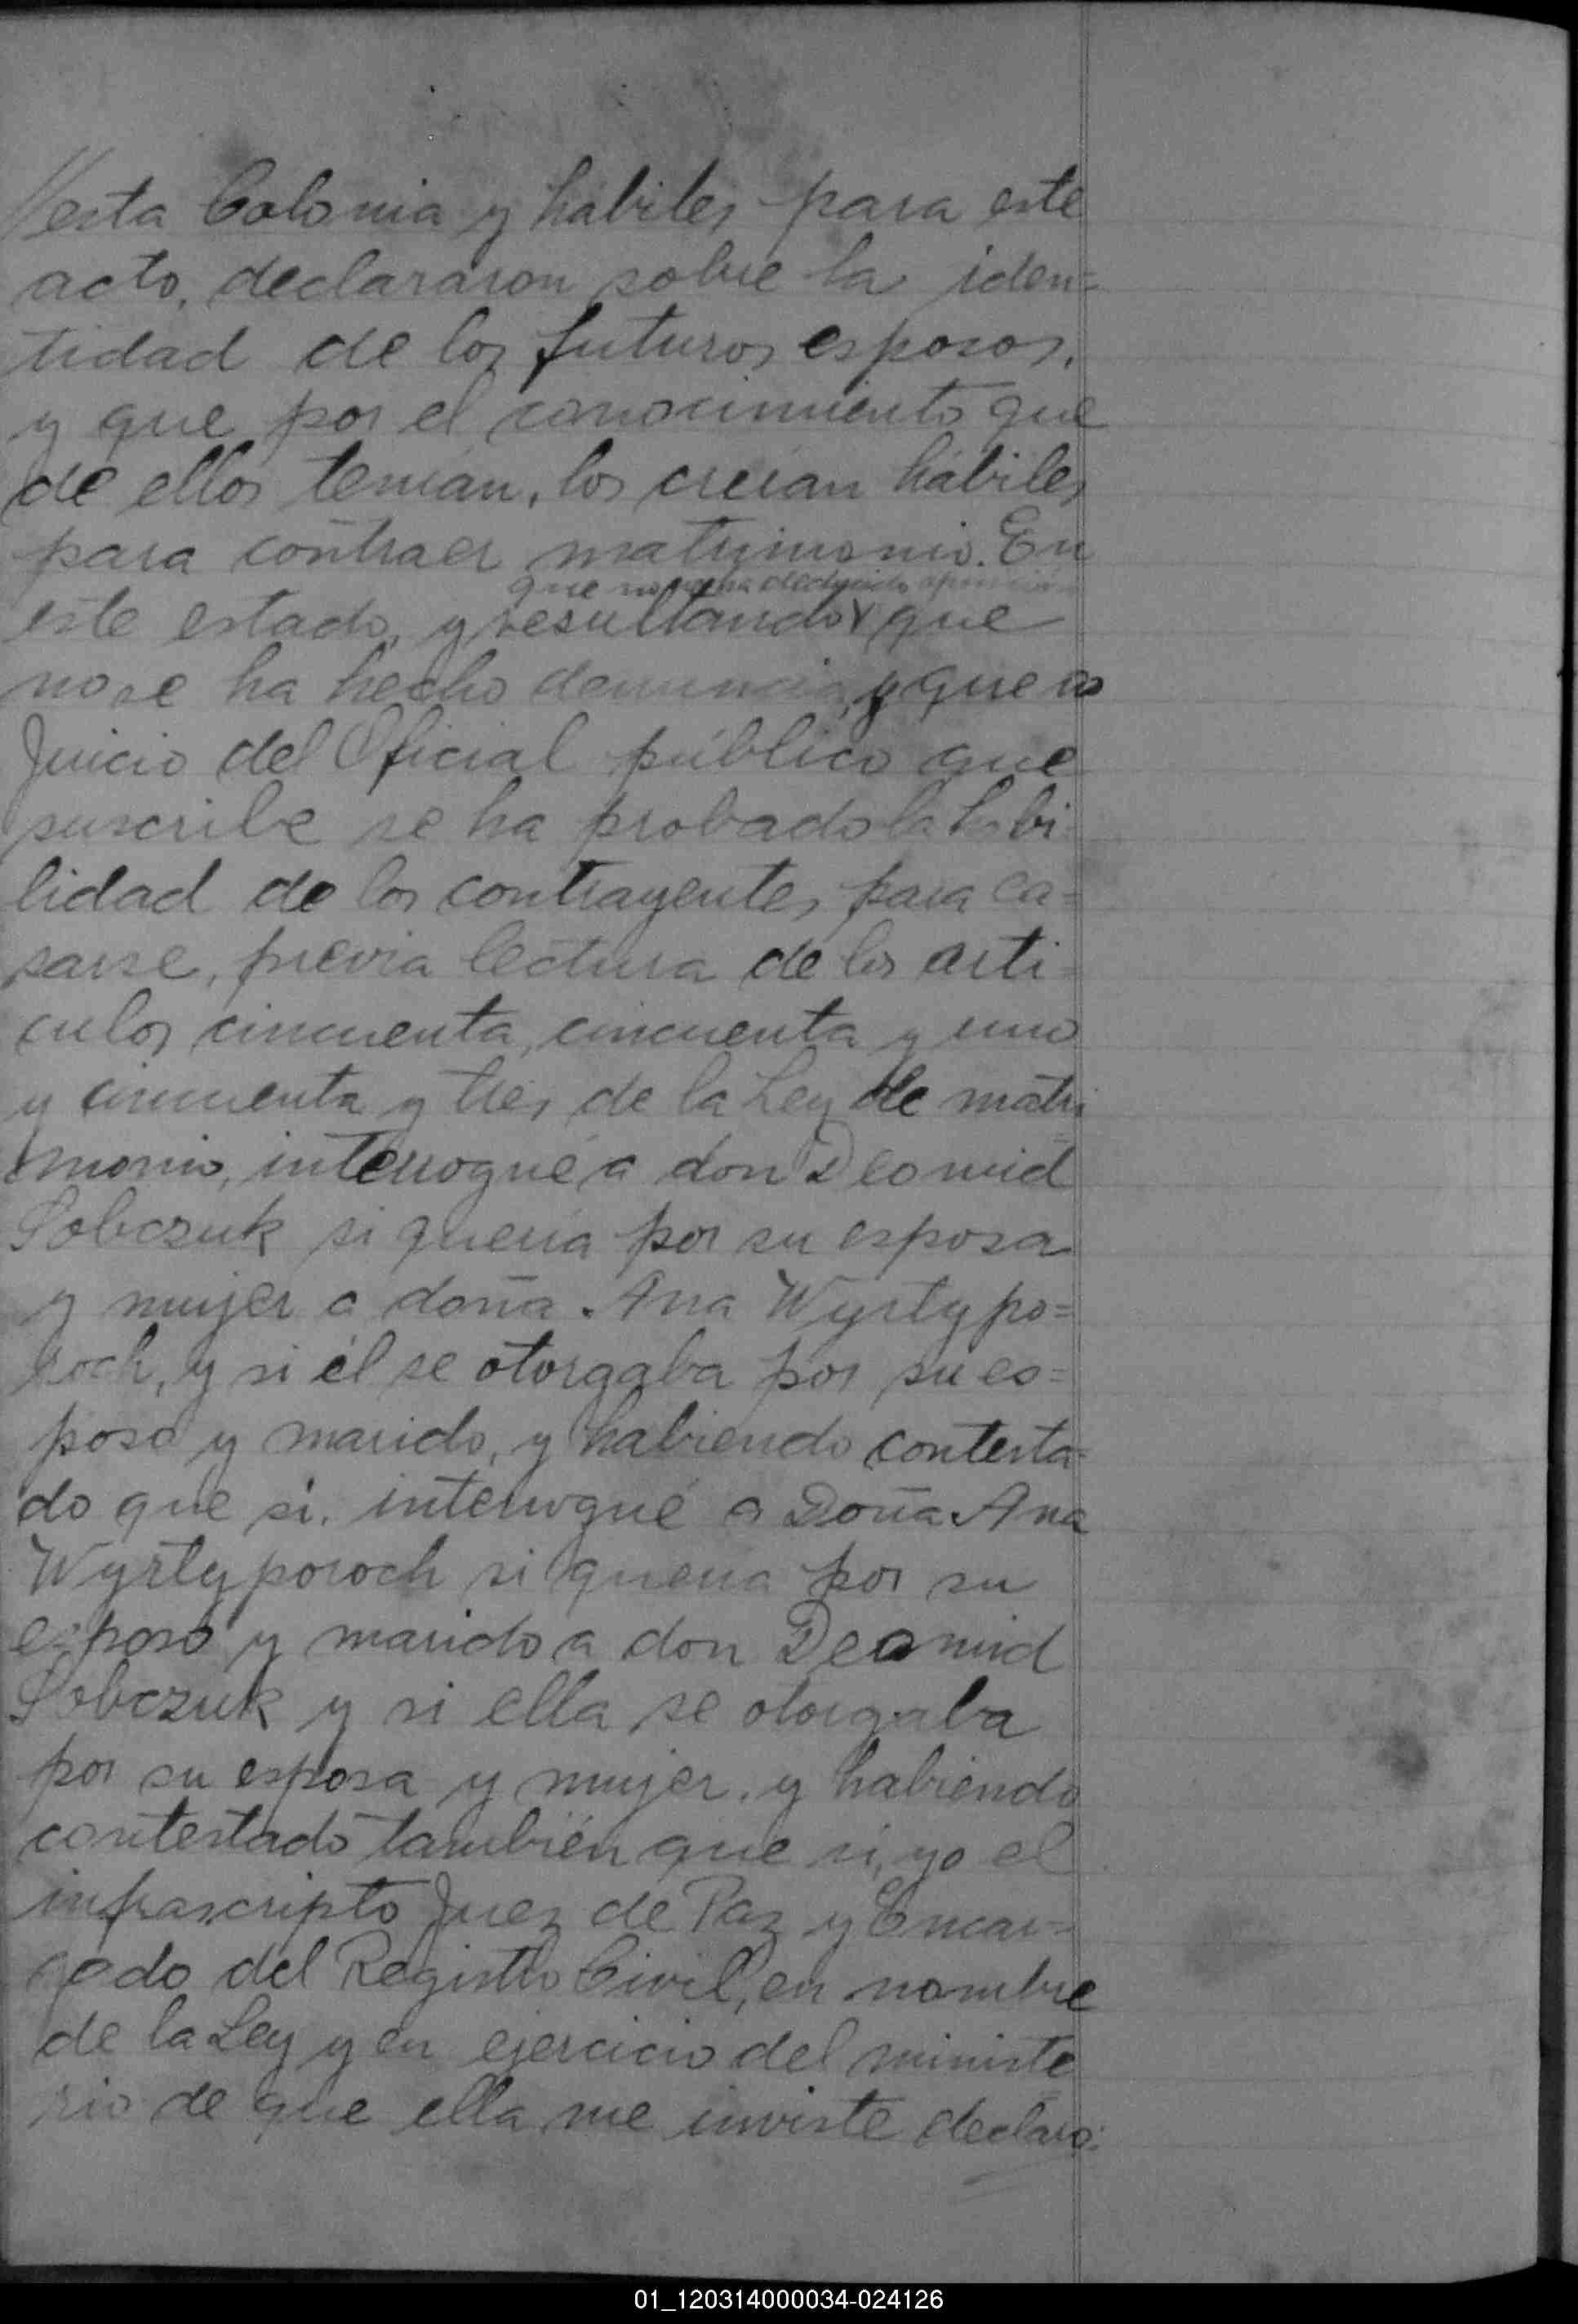 //esta Colonia y hábiles para este
acto, declararon sobre la iden=
tidad de los futuros esposos,
y que por el conocimiento que
de ellos tenían, los creían hábiles
para contraer matrimonio. En
que no se ha deducido oposición
este estado, y resultando que
no se ha hecho denuncia, y que a
Juicio del Oficial público que
suscribe se ha probado la habi
lidad de los contrayentes para ca=
sarse, previa lectura de los artí=
culos cincuenta, cincuenta y uno
y cincuenta y tres de la Ley de matri
monio, interrogué a don Deomid
Sobczuk si quería por su esposa
y mujer a doña Ana Wyrtypo=
roch, y si él se otorgaba por su es=
poso y marido, y habiendo contesta=
do que sí, interrogué a Doña Ana
Wyrtyporoch si quería por su
esposo y marido a don Deomid
Sobczuk y si ella se otorgaba
por su esposa y mujer, y habiendo
contestado también que sí, yo el
infrascripto Juez de Paz y Encar=
gado del Registro Civil, en nombre
de la Ley y en ejercicio del ministe
rio de que ella me inviste declaro:
01_120314000034-024126